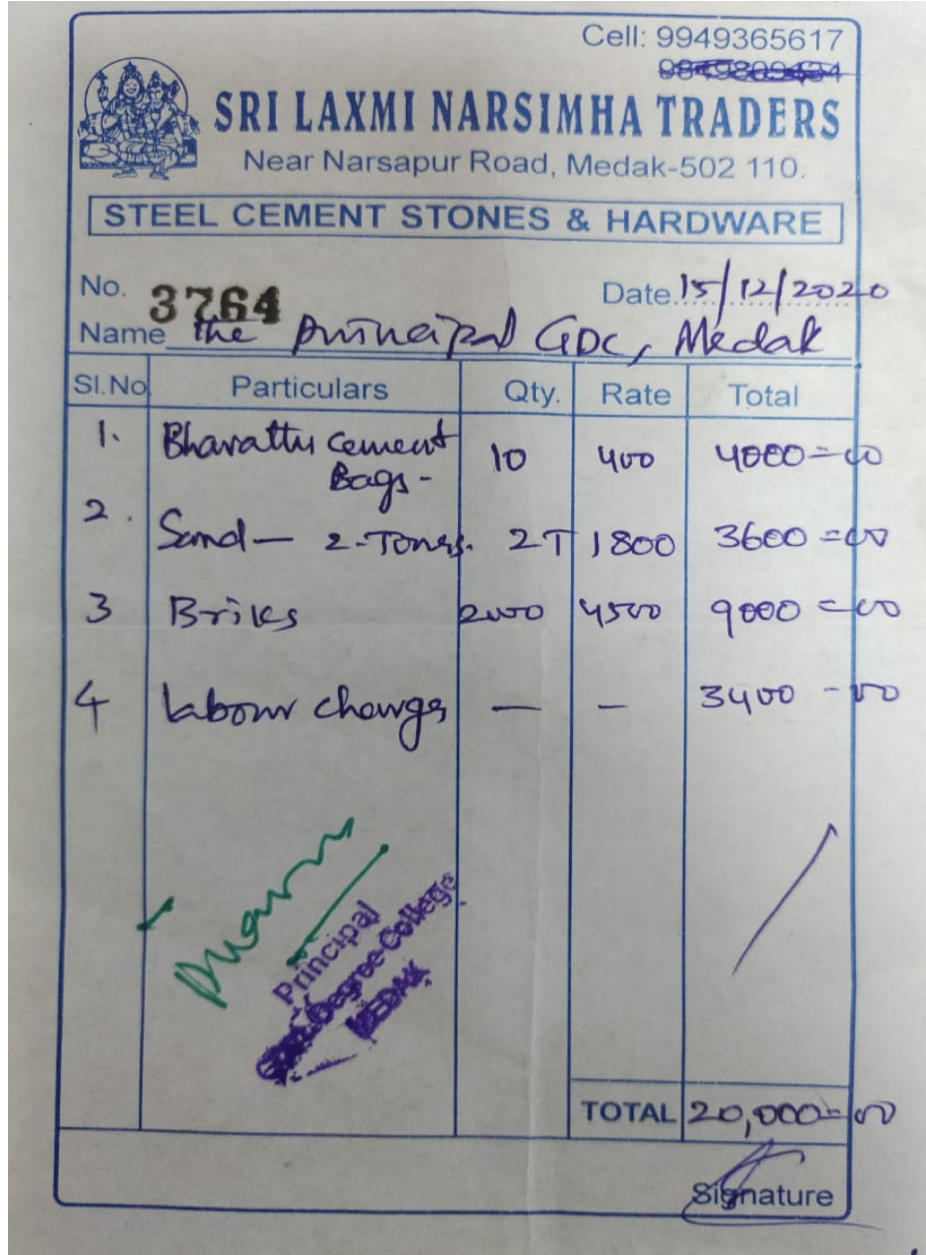 Cell: 9949365617
9849809494
SRI LAXMI NARSIMHA TRADERS
Near Narsapur Road, Medak-502 110.
STEEL CEMENT STONES & HARDWARE
No. 3764 Date. 15/12/2020
Name the principal GDC, Medak
Sl.No. Particulars Qty. Rate Total
1. Bharatty cement 10 400 4000=00
Bags-
2. Sand - 2-Tones. 2T 1800 3600=00
3 Briks 2000 4500 9000=00
4 labour charges — — 3400-00
Principal
Degree College
MEDAK
TOTAL 20,000=00
Signature